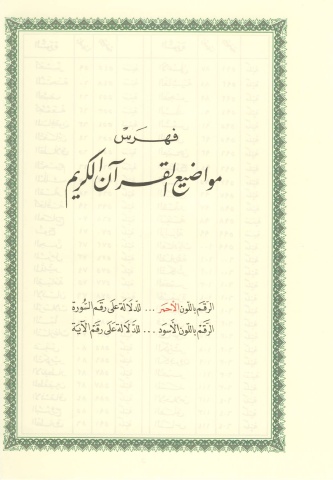 فهرس
مواضيع القرآن الكريم
الرقم باللون الأحمر ... للدلالة على رقم السورة
الرقم باللون الأسود ... للدلالة على رقم الآية